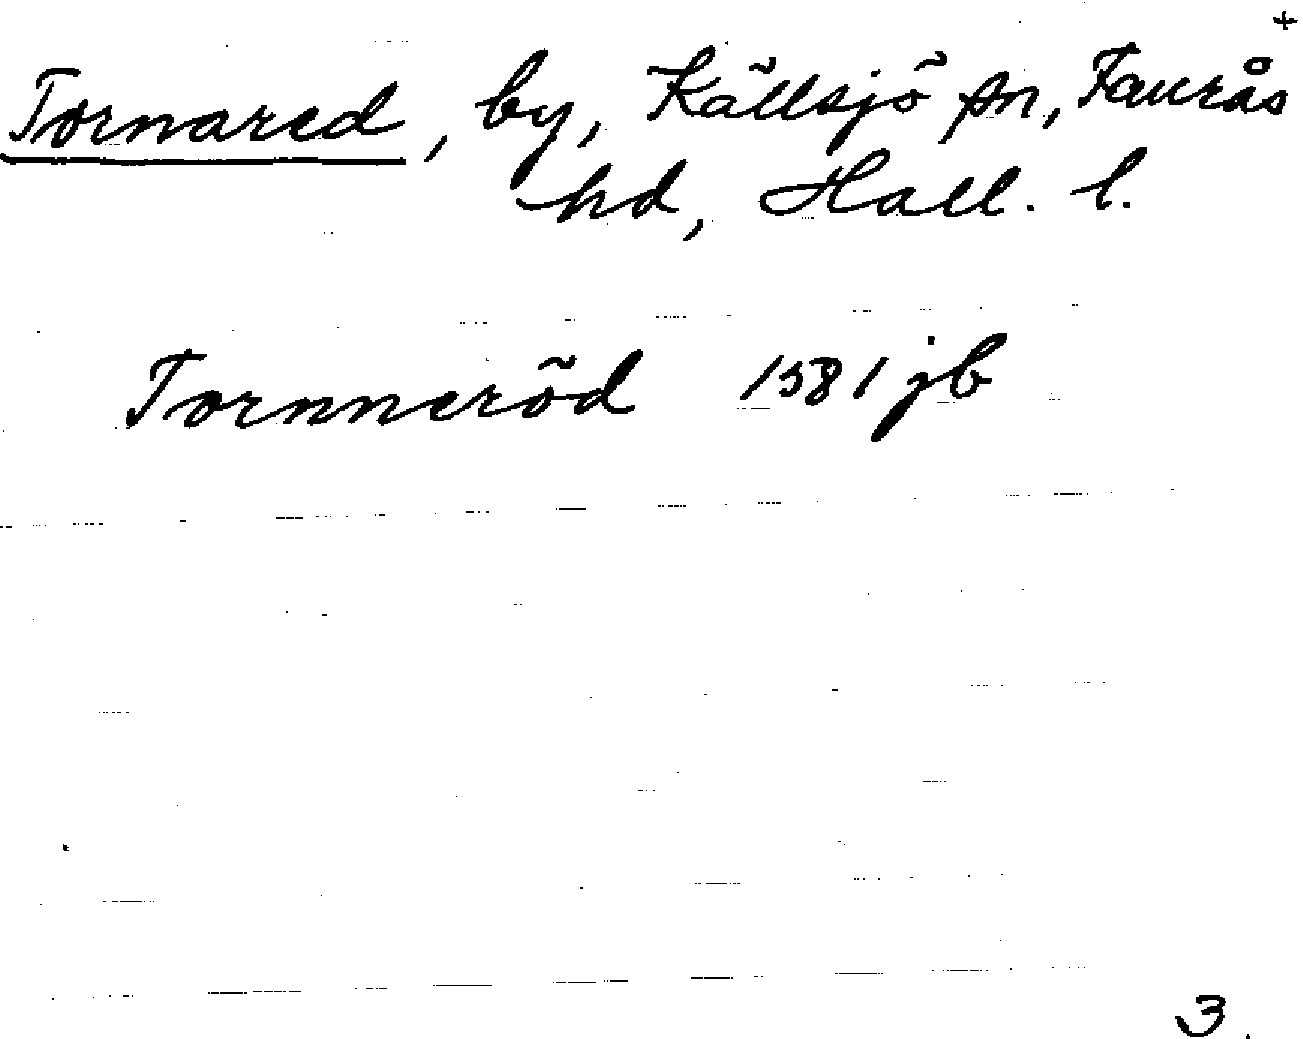 +
Tornared, by, Källsjö sn, Faurås
hd, Hall. l.
Tornneröd 1581 jb
3.